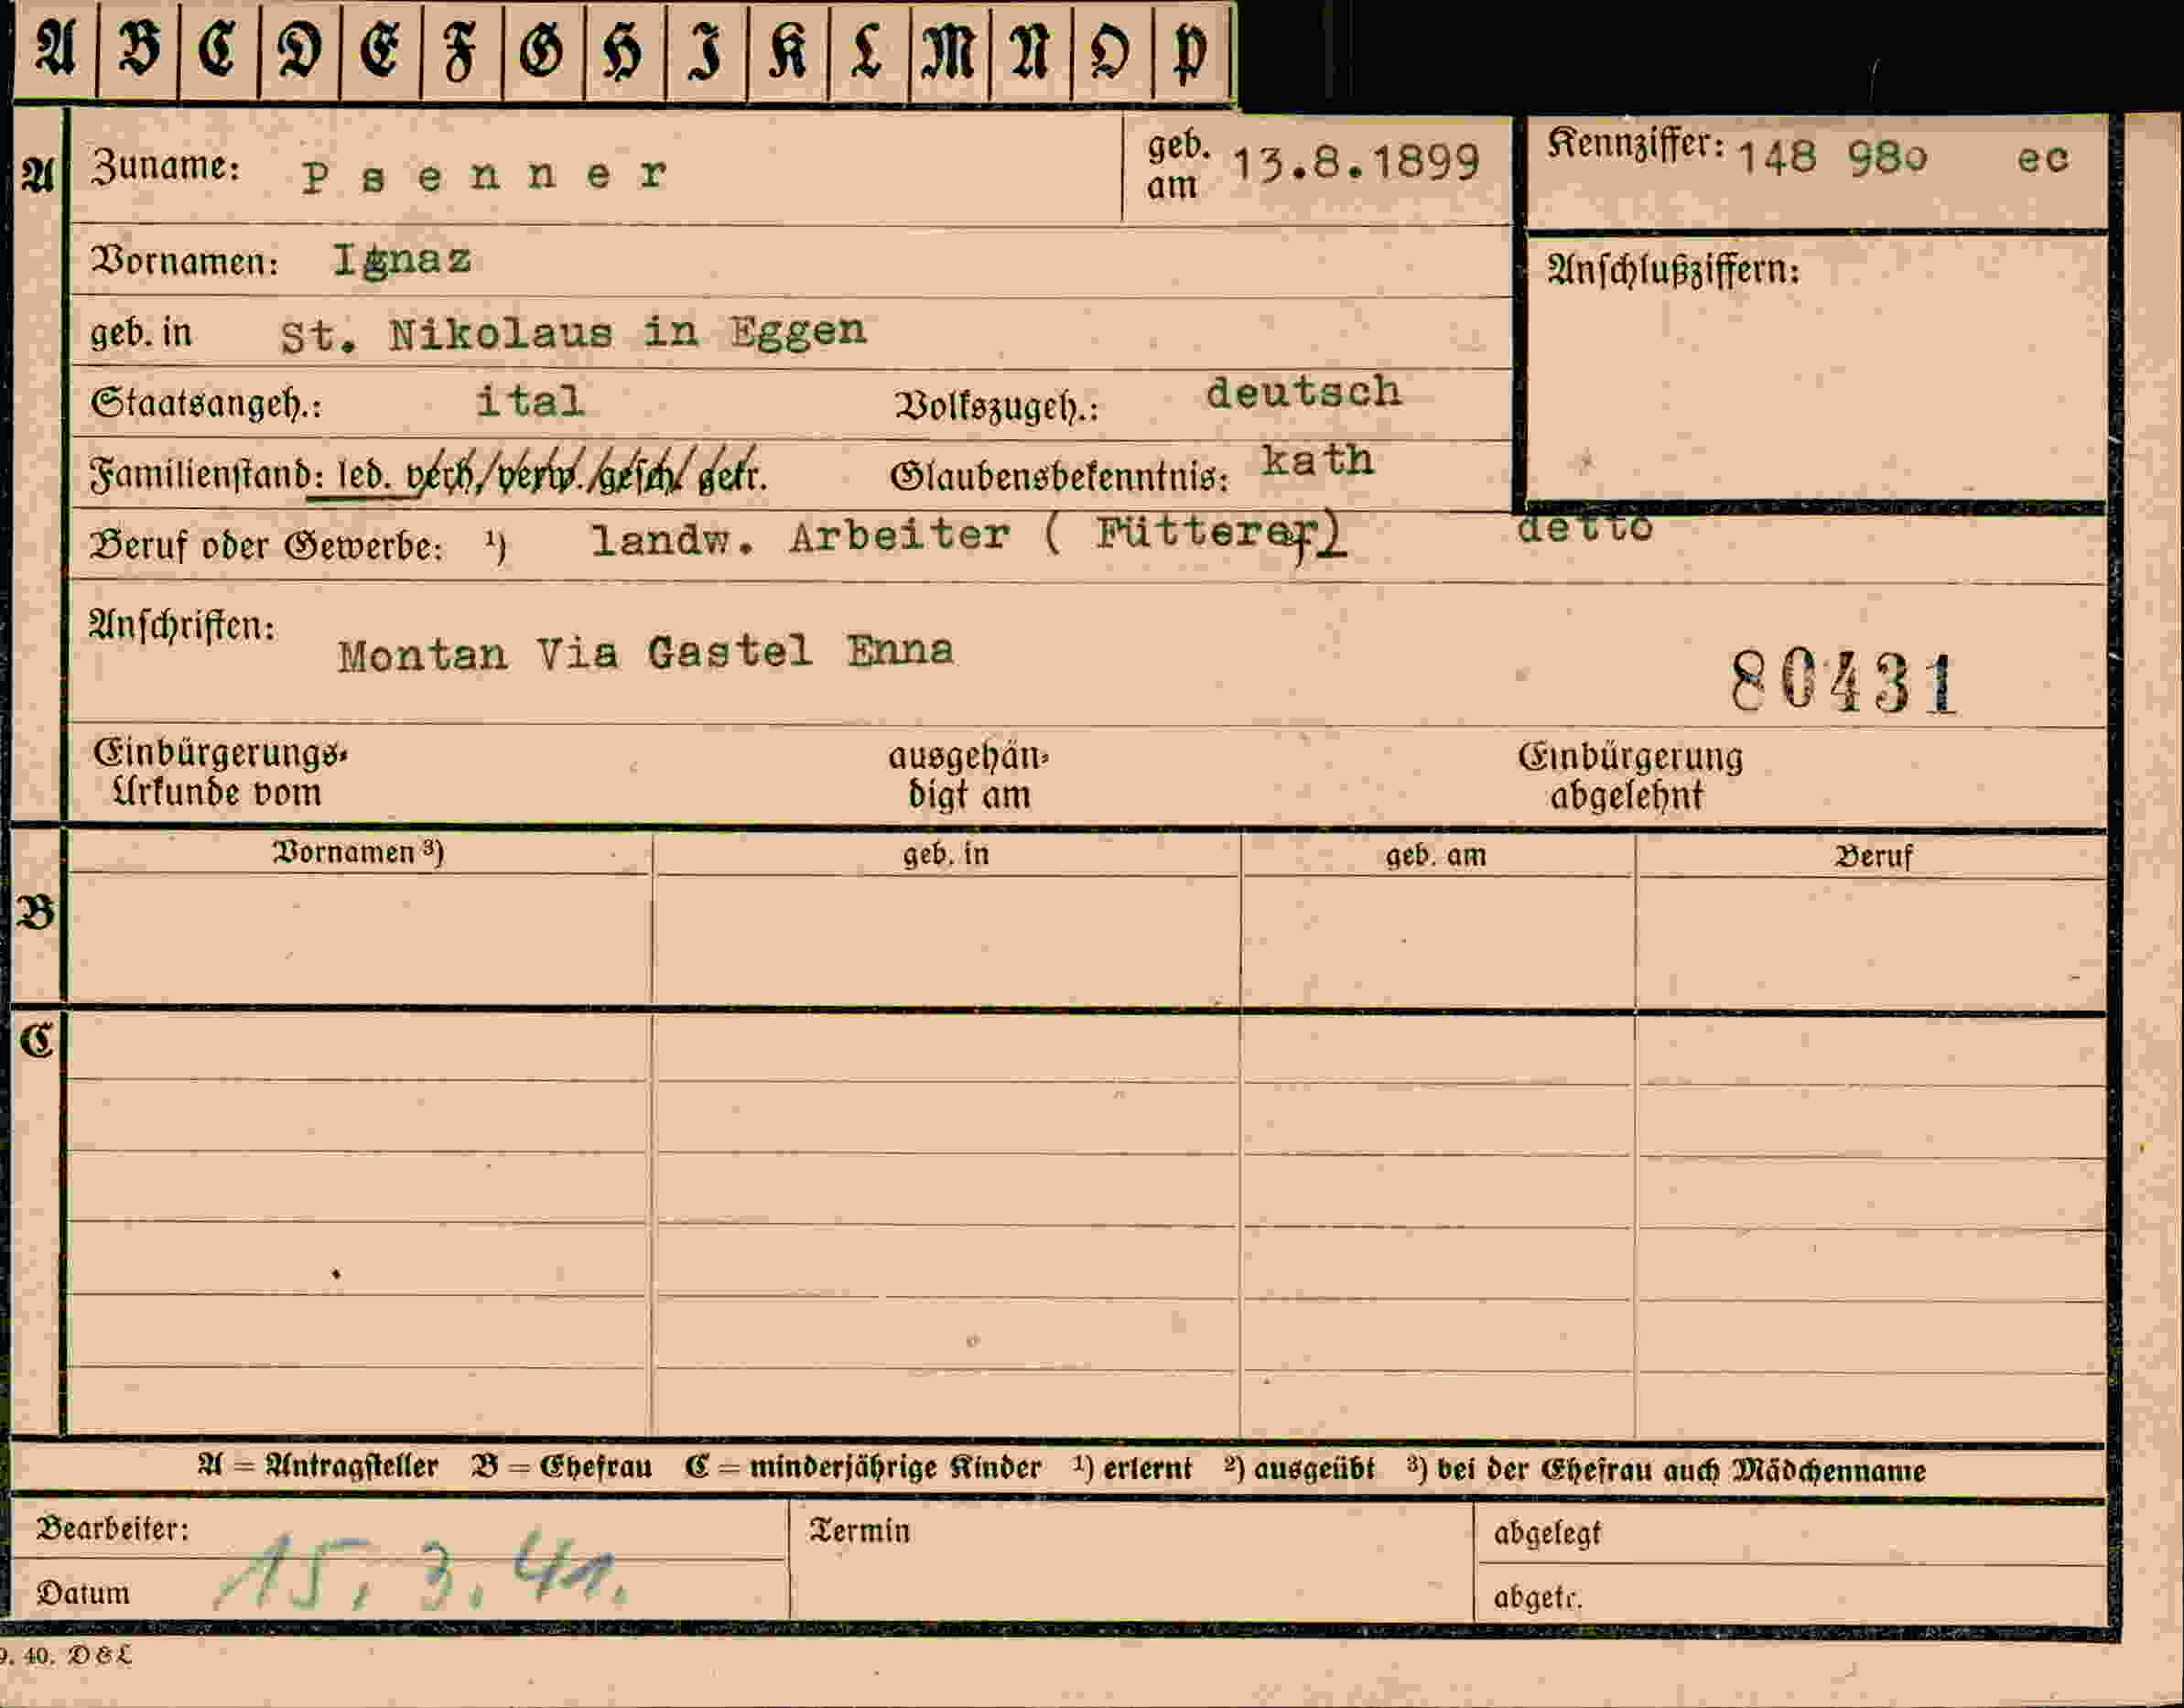 A B C D E F G H I K L M N O P
A Zuname: Psenner geb. am 13.8.1899 Kennziffer: 148 980 ec
Vornamen: Ignaz Anschlußziffern:
geb. in St. Nikolaus in Eggen
Staatsangeh.: ital Volkszugeh.: deutsch
Familienstand: led. verh./verw./gesch/ getr. Glaubensbekenntnis: kath
Beruf oder Gewerbe: ¹) landw. Arbeiter ( Fütterer) detto
Anschriften:
Montan Via Gastel Enna 80431
Einbürgerungs- ausgehän- Einbürgerung
Urkunde vom digt am abgelehnt
Vornamen ³) geb. in geb. am Beruf
B
C
A = Antragsteller B = Ehefrau C = minderjährige Kinder ¹) erlernt ²) ausgeübt ³) bei der Ehefrau auch Mädchenname
Bearbeiter: Termin abgelegt
Datum 15. 3. 41. abgetr.
9. 40. D&L